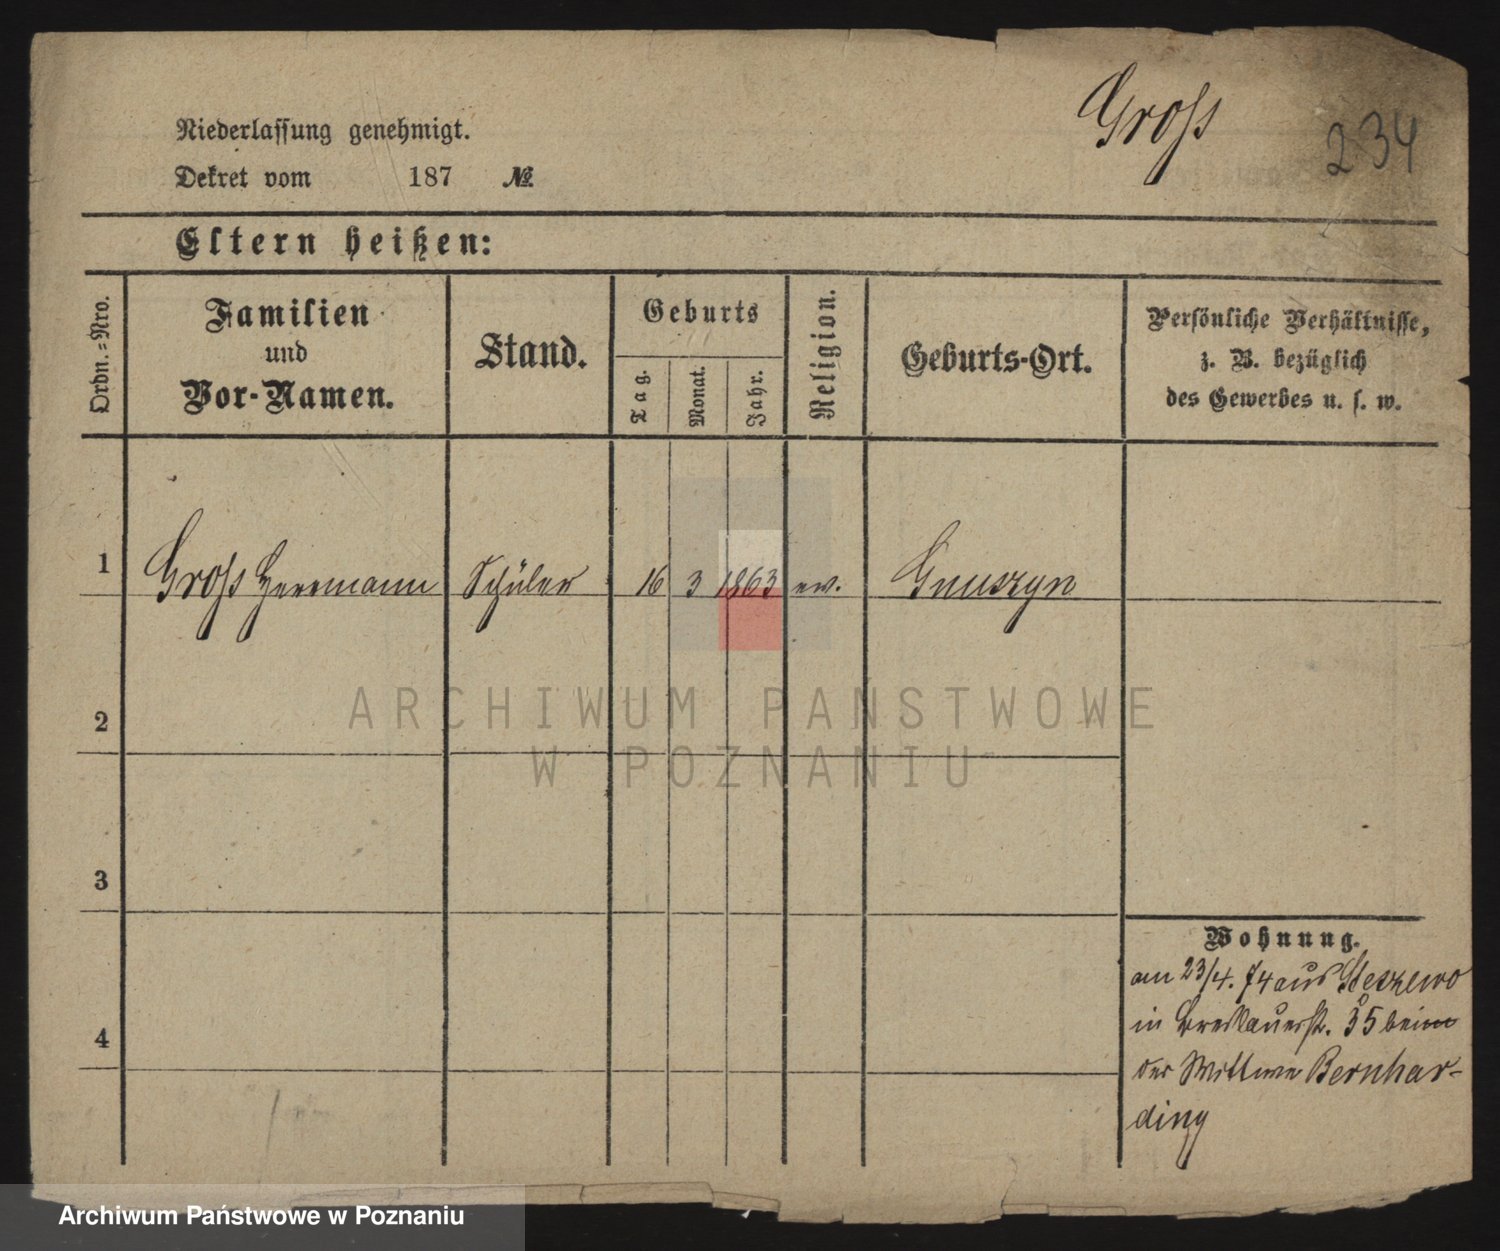 Groſs
234
Niederlaſſung genehmigt.
Dekret vom 187 №
Eltern heißen:
Ordn.-Nro.
Familien
und
Vor-Namen.
Stand.
Geburts
Tag.
Monat.
Jahr.
Religion.
Geburts-Ort.
Perſönliche Verhältniſſe,
z. B. bezüglich
des Gewerbes u. ſ. w.
1 Groſs Herrmann Schüler 16 3 1863 ev. Gnuszyn
2
3
4
Wohnung.
am 23/4. 74 aus
in Breslauerſt. 35 beim
der Wittwe Bernhar-
ding
ARCHIWUM PAŃSTWOWE
W POZNANIU
Archiwum Państwowe w Poznaniu